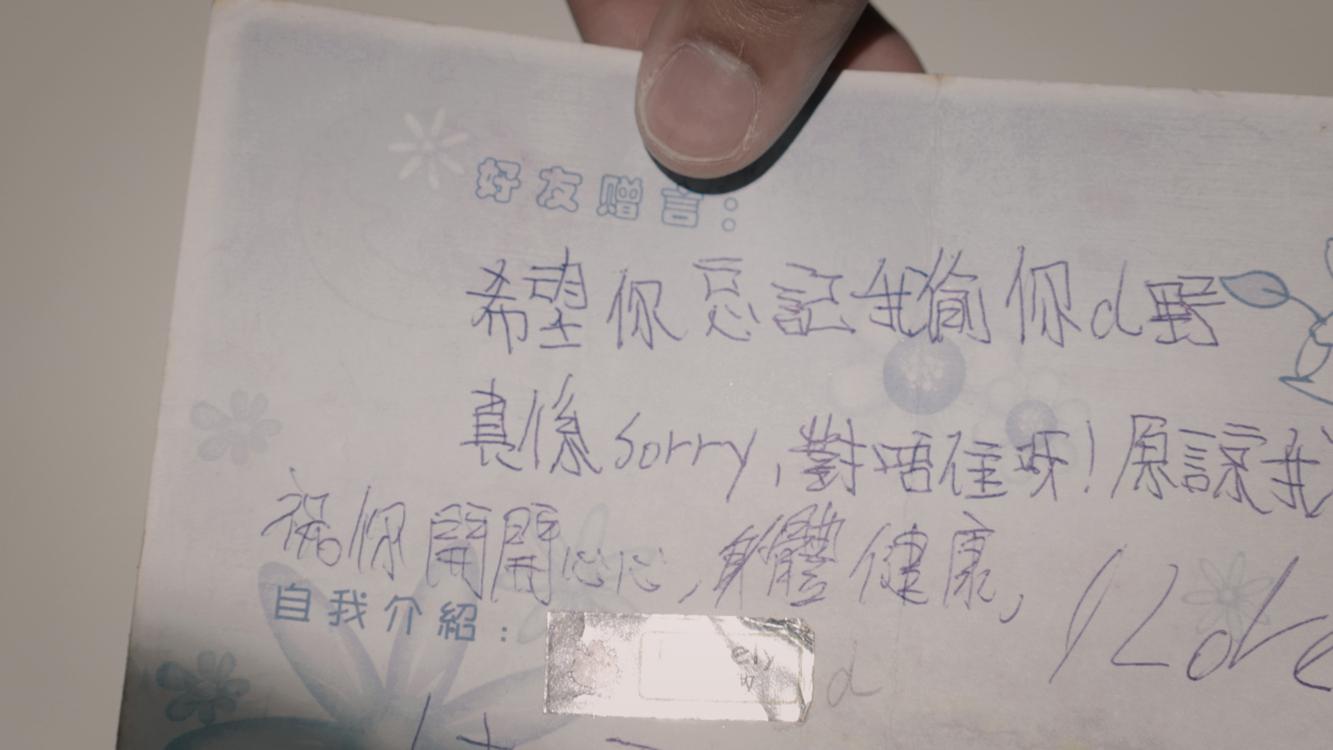 好友赠言：
希望你忘記我偷你d野
真係sorry,對唔住呀!原諒我
祝你開開心心,身體健康,
I Love
自我介紹：
d